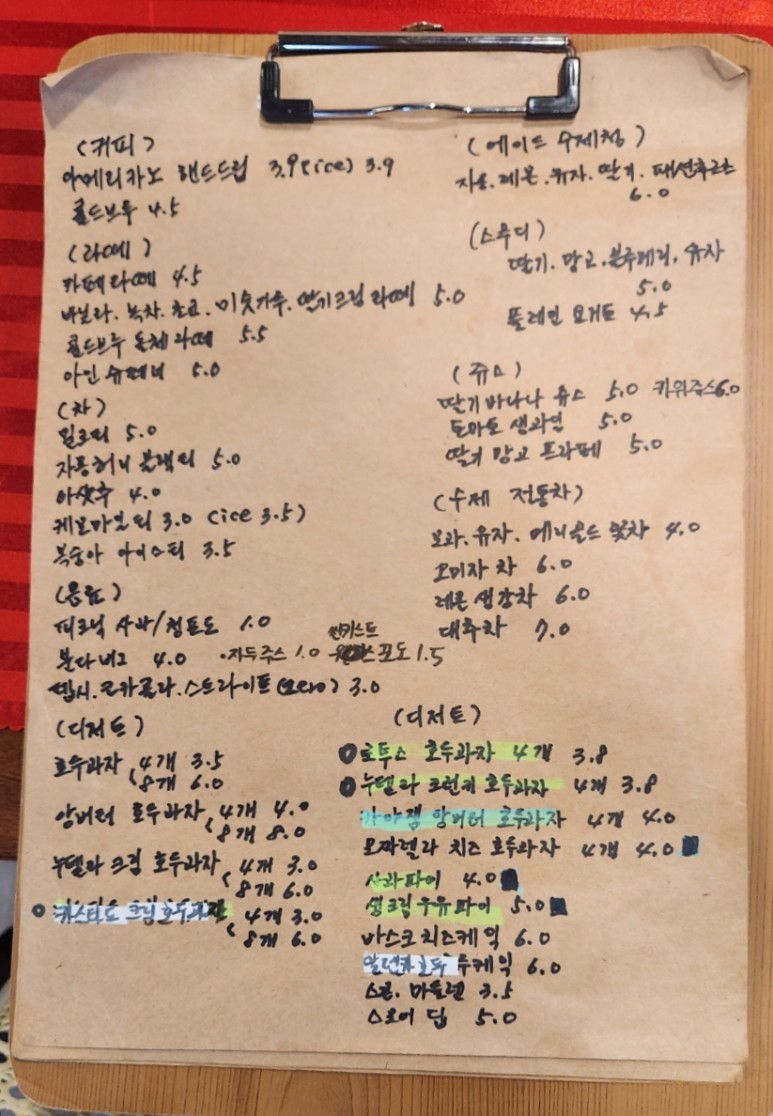 (커피)
아메리카노 핸드드립 3.9 (ice) 3.9
콜드브루 4.5
(라떼)
카페라떼 4.5
바닐라. 녹차. 초코. 미숫가루. 딸기크림 라떼 5.0
콜드브루 돌체라떼 5.5
아인슈페너 5.0
(차)
밀크티 5.0
자몽허니블랙티 5.0
아샷추 4.0
케모마일티 3.0 (ice 3.5)
복숭아 아이스티 3.5
(음료)
피크닉 사과/청포도 1.0
분다버그 4.0 ·자두주스 1.0 썬키스트 포도 1.5
펩시. 코카콜라. 스프라이트 (zero) 3.0
(디저트)
호두과자 4개 3.5
8개 6.0
앙버터 호두과자 4개 4.0
8개 8.0
누텔라 크림 호두과자 4개 3.0
8개 6.0
커스타드 크림 호두과자 4개 3.0
8개 6.0
(에이드 수제청)
자몽. 레몬. 유자. 딸기. 패션후르츠
6.0
(스무디)
딸기. 망고. 블루베리. 유자
5.0
플레인 요거트 4.5
(쥬스)
딸기 바나나 쥬스 5.0 키위쥬스 6.0
토마토 생과일 5.0
딸기 망고 프라페 5.0
(수제 전통차)
모과. 유자. 메리골드 꽃차 4.0
오미자차 6.0
레몬 생강차 6.0
대추차 7.0
(디저트)
로투스 호두과자 4개 3.8
누텔라 크런치 호두과자 4개 3.8
카야잼 앙버터 호두과자 4개 4.0
모짜렐라 치즈 호두과자 4개 4.0
사과파이 4.0
생크림우유파이 5.0
바스크치즈케익 6.0
케익 6.0
스콘. 마들렌 3.5
스모어 딥 5.0